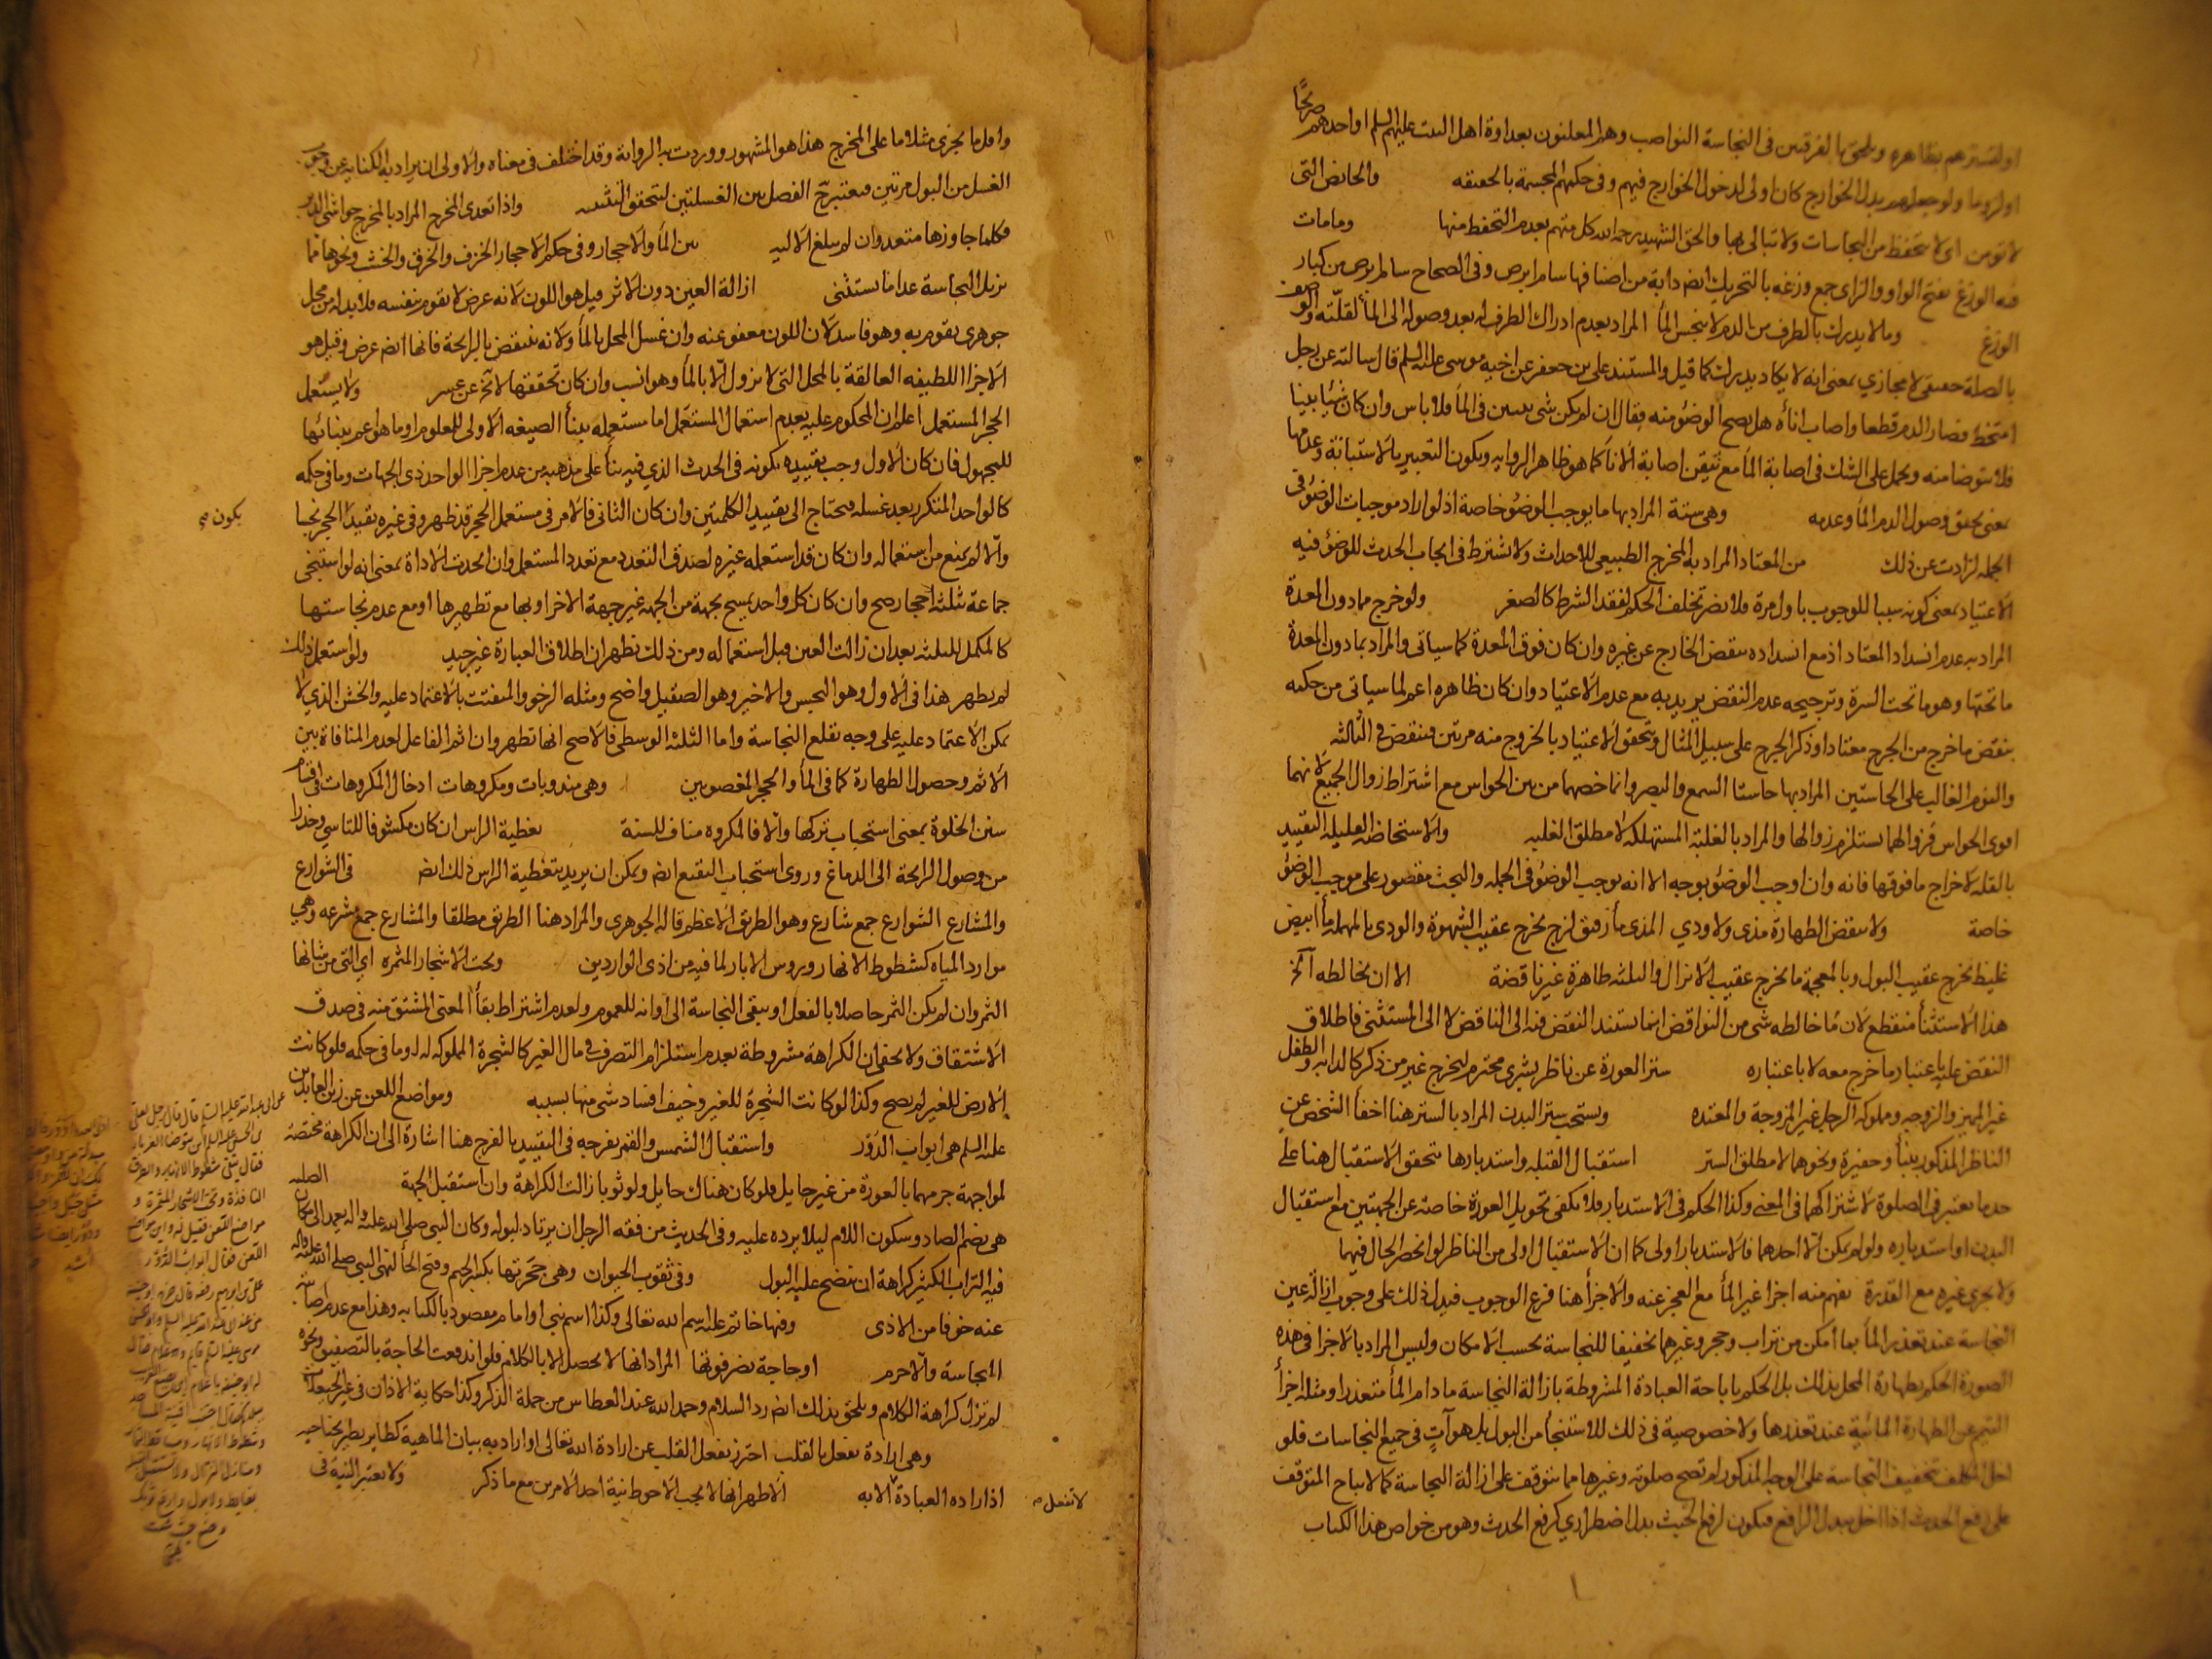 اولتسترهم بظاهره ويلحق بالفرقتين في النجاسة النواصب وهم المعلنون بعداوة اهل البيت عليهم السلم او احدهم صريحًا
اولزوما ولو جعلهم بدل الخوارج كان اولى لدخول الخوارج فيهم وفي حكمهم المجسمة بالحقيقه والحائض التى
لا تومن اى لا تتحفظ من النجاسات ولا تبالى بها والحق الشهيد رحمه الله كل متهم بعدم التحفظ منها ومامات
فيه الوزغ بفتح الواو والزاى جمع وزغه بالتحريك ايض دابة من اصنافها سام ابرص وفي الصحاح سام ابرص من كبار
الوزغ ومالا يدرك بالطرف من الدم لا ينجس الماء المراد بعدم ادراك الطرف له بعد وصوله الى الماء لقلته والوصف
بالصلة حقيقى لا مجازي بمعنى انه لا يكاد يدرك كما قيل والمستند على بن جعفر عن اخيه موسى عليه السلم قال سالته عن رجل
امتخط فصار الدم قطعا واصاب اناه هل يصح الوضؤ منه فقال ان لم يكن شى يستبين في الماء فلا باس وان كان شيئا بينا
فلا يتوضا منه ويحمل على الشك في اصابة الماء مع تيقن اصابة الاناء كما هو ظاهر الروايه ويكون التعبير بالاستبانة وعدمها
بمعنى تحقق وصول الدم الماء وعدمه وهى ستة المراد بها ما يوجب الوضؤ خاصة اذ لو اراد موجبات الوضؤ في
الجمله لزادت عن ذلك من المعتاد المراد به المخرج الطبيعى للاحداث ولا يشترط في ايجاب الحدث للوضؤ فيه
الاعتياد بمعنى كونه سببا للوجوب باول مرة فلا يضر تخلف الحكم لفقد الشرط كالصغر ولو خرج مما دون المعدة
المراد به عدم انسداد المعتاد اذ مع انسداده ينقض الخارج عن غيره وان كان فوق المعدة كما سياتى والمراد بما دون المعدة
ما تحتها وهو ما تحت السرة وترجيحه عدم النقض يريد به مع عدم الاعتياد وان كان ظاهره اعم لما سياتى من حكمه
بنقض ما خرج من الجرح معتادا وذكر الجرح على سبيل المثال ويتحقق الاعتياد بالخروج منه مرتين فينقض في الثالثه
والنوم الغالب على الحاستين المراد بها حاستا السمع والبصر وانما خصهما من بين الحواس مع اشتراط زوال الجميع لانهما
اقوى الحواس فزوالهما يستلزم زوالها والمراد بالغلبة المستهلكه لا مطلق الغلبه والاستحاضه القليله التقييد
بالقله لاخراج ما فوقها فانه وان اوجب الوضؤ بوجه الا انه يوجب الوضؤ في الجمله والبحث مقصور على موجب الوضؤ
خاصة ولا ينقض الطهارة مذى ولا ودي المذى ماء رقيق لزج يخرج عقيب الشهوة والودى بالمهمله ماء ابيض
غليظ يخرج عقيب البول وبالمعجمة ما يخرج عقيب الانزال والثلثه طاهرة غير ناقضة الا ان يخالطه آلخ
هذا الاستثناء منقطع لان ما خالطه شى من النواقض انما يستند النقض فيه الى الناقض لا الى المستثنى فاطلاق
النقض عليه باعتبار ما خرج معه لا باعتباره ستر العورة عن ناظر بشرى محترم ليخرج غير من ذكر كالدابه والطفل
غير المميز والزوجه ومملوكة الرجل غير المزوجة والمعتده ويستحب ستر البدن المراد بالستر هنا اخفاء الشخص عن
الناظر المذكور ببناء وحفيرة ونحوهما لا مطلق الستر استقبال القبله واستدبارها يتحقق الاستقبال هنا على
حد ما يعتبر في الصلوة لاشتراكهما في المعنى وكذا الحكم في الاستدبار فلا يكفى تحويل العورة خاصة عن الجهتين مع استقبال
البدن او استدباره ولو لم يمكن الا احدهما فالاستدبار اولى كما ان الاستقبال اولى من الناظر لو انحصر الحال فيهما
ولا يجزى غيره مع القدرة يفهم منه اجزا غير الماء مع العجز عنه والاجزاء هنا فرع الوجوب فيدل ذلك على وجوب ازالة عين
النجاسة عند تعذر الماء بما امكن من تراب وحجر وغيرهما تخفيفا للنجاسة بحسب الامكان وليس المراد بالاجزا في هذه
الصورة الحكم بطهارة المحل بذلك بل الحكم باباحة العبادة المشروطة بازالة النجاسة ما دام الماء متعذرا ومثله اجزاء
التيمم عن الطهارة المائية عند تعذرها ولا خصوصية في ذلك للاستنجاء من البول بل هو آتٍ في جميع النجاسات فلو
اخل المكلف بتخفيف النجاسة على الوجه المذكور لم تصح صلوته وغيرها مما يتوقف على ازالة النجاسة كما لا يباح المتوقف
على رفع الحدث اذا اخل ببدل الرافع فيكون لرفع الخبث بدل اضطراري كرفع الحدث وهو من خواص هذا الكتاب
واقل ما يجزى مثلا ما على المخرج هذا هو المشهور ووردت به الرواية وقد اختلف في معناه والاولى ان يراد به الكنايه عن وجوب
الغسل من البول مرتين فيعتبر ح الفصل بين الغسلتين لتحقق التثنيه واذا تعدى المخرج المراد بالمخرج حواشى الدبر
فكلما جاوزها متعد وان لم يبلغ الاليه بين الماء والاحجار وفي حكم الاحجار الخزف والخرق والخشب ونحوها مما
يزيل النجاسة عدا ما يستثنى ازالة العين دون الاثر قيل هو اللون لانه عرض لا يقوم بنفسه فلا بد له من محل
جوهرى يقوم به وهو فاسد لان اللون معفو عنه وان غسل المحل بالماء ولانه ينتقض بالرايحة فانها ايض عرض وقيل هو
الاجزا اللطيفه العالقة بالمحل التى لا يزول الا بالماء وهو انسب وان كان تحققها لا يخ عن عسر ولا يستعمل
الحجر المستعمل اعلم ان المحكوم عليه بعدم استعمال المستعمل اما مستعمله ببناء الصيغه الاولى للمعلوم او ما هو اعم ببنائها
للمجهول فان كان الاول وجب تقييده بكونه في الحدث الذي فيه بناء على مذهبه من عدم اجزا الواحد ذى الجهات وما في حكمه
كالواحد المتكرر بعد غسله فيحتاج الى تقييد الكلمتين وان كان الثانى فالامر في مستعمل الحجر قد ظهر وفي غيره يقيد الحجر نجسا
يكون صح
والا لم يمنع من استعماله وان كان قد استعمله غيره لصدق التعدد مع تعدد المستعمل وان اتحدت الاداة بمعنى انه لو استنجى
جماعة بثلثه احجار صح وان كان كل واحد يمسح بجهة من الجهه غير جهة الاخر او بها مع تطهيرها او مع عدم نجاستها
كالمكمل للثلثه بعد ان زالت العين قبل استعماله ومن ذلك تظهر ان اطلاق العبارة غير جيد ولو استعمل ذلك
لم يطهر هذا في الاول وهو النجس والاخير وهو الصقيل واضح ومثله الرخو والمتفتت بالاعتماد عليه والخشن الذي لا
يمكن الاعتماد عليه على وجه تقلع النجاسة واما الثلثه الوسطى فالاصح انها تطهر وان اثم الفاعل لعدم المنافاة بين
الاثم وحصول الطهارة كما في الماء والحجر المغصوبين وهى مندوبات ومكروهات ادخال المكروهات في اقسام
سنن الخلوة بمعنى استحباب تركها والا فالمكروه مناف للسنة تغطية الراس ان كان مكشوفا للتاسي وحذرا
من وصول الرايحة الى الدماغ وروى استحباب التقنع ايض ويمكن ان يريد بتغطية الراس ذلك ايض في الشوارع
والمشارع الشوارع جمع شارع وهو الطريق الاعظم قاله الجوهرى والمراد هنا الطريق مطلقا والمشارع جمع مشرعه وهي
موارد المياه كشطوط الانهار وروس الابار لما فيه من اذى الواردين وتحت الاشجار المثمره اي التى من شانها
الثمر وان لم يكن الثمر حاصلا بالفعل او يبقى النجاسة الى اوانه للعموم ولعدم اشتراط بقاء المعنى المشتق منه في صدق
الاشتقاق ولا يخفى ان الكراهة مشروطة بعدم استلزام التصرف في مال الغير كالشجرة المملوكه له او ما في حكمه فلو كانت
الارض للغير لم يصح وكذا لو كانت الشجرة للغير وخيف افساد شى منها بسببه ومواضع اللعن عن زين العابدين
عليه السلم هى ابواب الدور واستقبال الشمس والقمر بفرجه في التقييد بالفرج هنا اشارة الى ان الكراهة مختصة
لمواجهة جرمهما بالعورة من غير حايل فلو كان هناك حايل ولو ثوبا زالت الكراهة وان استقبل الجهة الصلبه
هى بضم الصاد وسكون اللام ليلا يرده عليه وفي الحديث من فقه الرجل ان يرتاد لبوله وكان النبى صلى الله عليه واله يعمد الى مكان
فيه التراب الكثير كراهة ان ينضح عليه البول وفي ثقوب الحيوان وهى جحرتها بكسر الجيم وفتح الحاء لنهى النبى صلى الله عليه واله
عنه خوفا من الاذى وفيها خاتم عليه اسم الله تعالى وكذا اسم نبى او امام مقصود بالكتابه وهذا مع عدم اصابة
النجاسة والا حرم او حاجة يضر فوتها المراد انها لا تحصل الا بالكلام فلو اندفعت الحاجة بالتصفيق ونحوه
لم تزل كراهة الكلام ويلحق بذلك ايض رد السلام وحمد الله عند العطاس من جملة الذكر وكذا حكاية الاذان في غير الحيعلات
وهى ارادة تفعل بالقلب احترز بفعل القلب عن ارادة الله تعالى او اراد به بيان الماهية كطاير يطير بجناحيه
اذ اراده العبادة لا به الاظهر انها لا تجب الاحوط نية احد الامرين مع ما ذكر ولا تعتبر النية في
لا تفعل
عن ابى عبد الله عليه السلم قال قال رجل لعلي
بن الحسين عليه السلم اين يتوضا الغرباء
فقال يتقى شطوط الانهار والطرق
النافذة وتحت الاشجار المثمرة و
مواضع اللعن فقيل له واين مواضع
اللعن فقال ابواب الدور